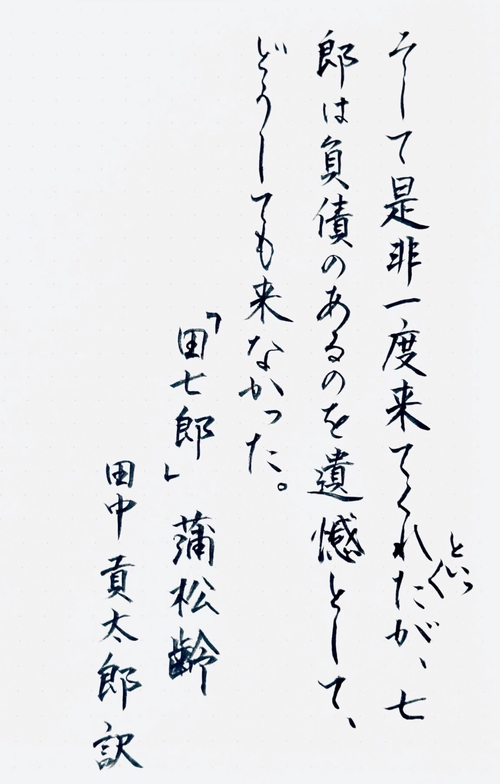 そして是非一度来てくれたが、七
といっ
郎は負債のあるのを遺憾として、
どうしても来なかった。
「田七郎」 蒲松齢
田中貢太郎 訳